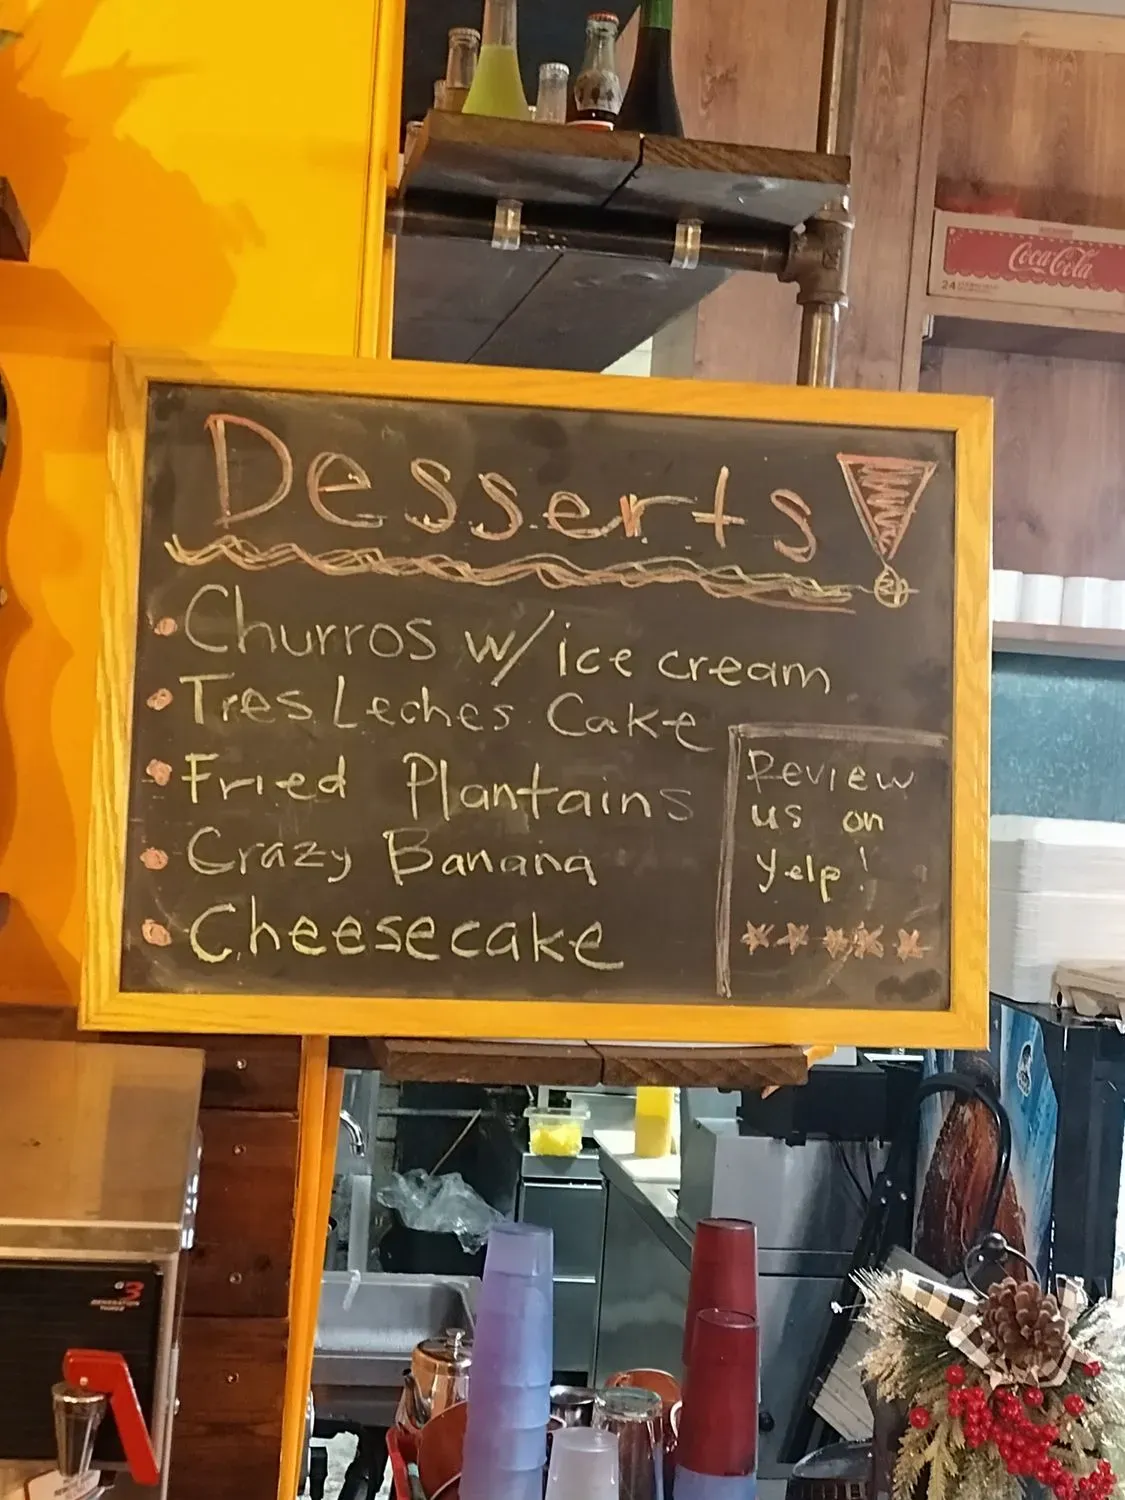 Coca-Cola
24
Desserts
Churros w/ ice cream
Tres Leches Cake
Fried Plantains
Crazy Banana
Cheesecake
Review
us on
Yelp!
3